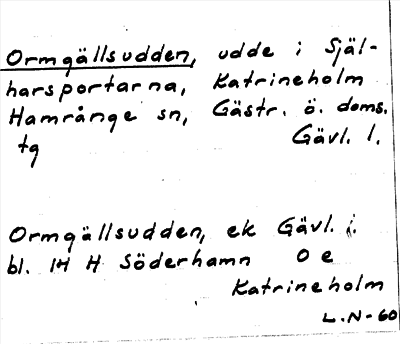 Ormgällsudden, udde i Själ-
harsportarna, Katrineholm
Hamrånge sn, Gästr. ö. doms.
tg Gävl. l.
Ormgällsudden, ek Gävl.
bl. 1H H Söderhamn O e
Katrineholm
L.N-60